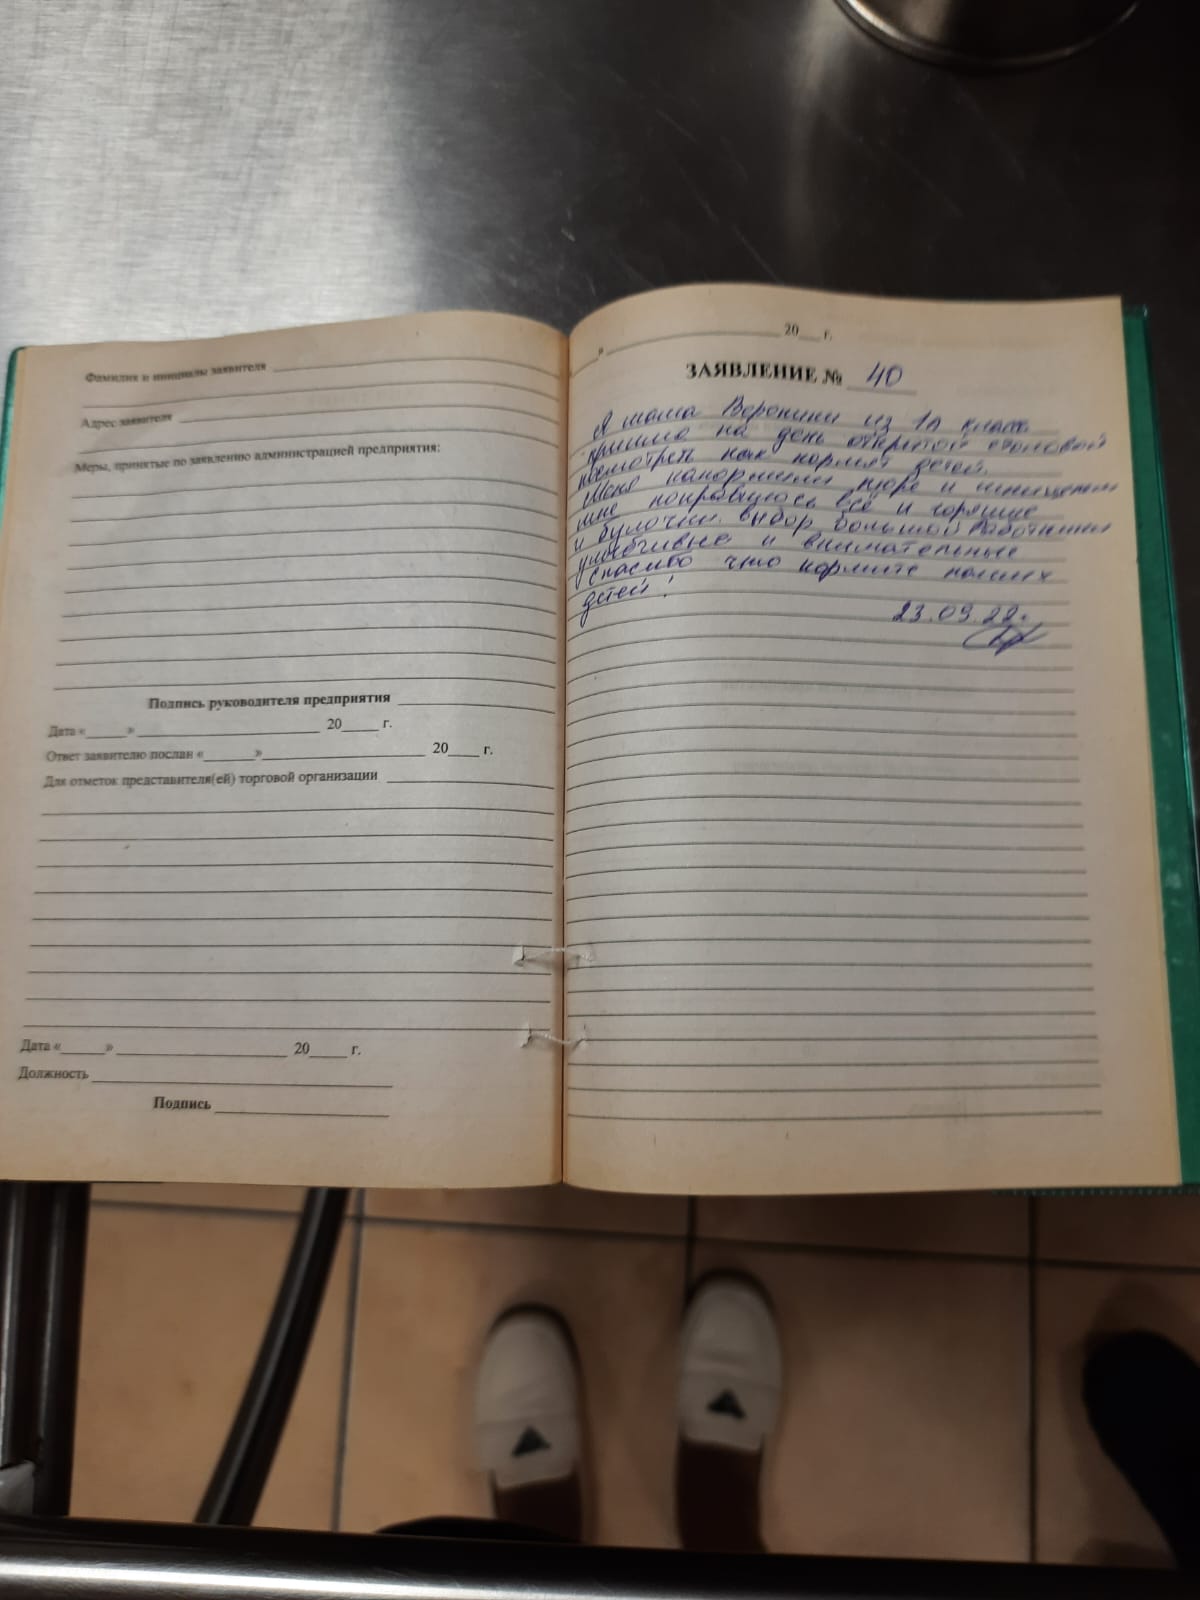 Фамилия и инициалы заявителя
Адрес заявителя
Меры, принятые по заявлению администрацией предприятия:
Подпись руководителя предприятия
Дата «____» ____ 20____ г.
Ответ заявителю послан «____» ____ 20____ г.
Для отметок представителя(ей) торговой организации
Дата «____» ____ 20____ г.
Должность
Подпись
» ____ 20__ г.
ЗАЯВЛЕНИЕ № 40
Я мама Вероники из 1а класса
пришла на день открытой столовой
посмотреть как кормят детей.
Меня накормили пюре и
мне понравилось всё и горящие
и булочки. выбор большой Работники
улыбчивые и внимательные
спасибо что кормите наших
детей!
23.09.22г.